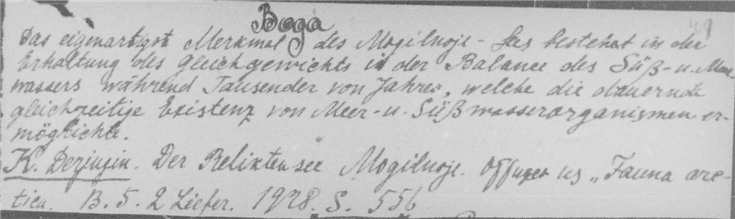 Вода
49
Das eigenartigst Merkmal des Mogilnoje-Sees bestehet in der
Erhaltung des Gleichgewichts in der Balance des Süß-u. Meer
wassers während Tausender von Jahren, welche die dauernde
gleichzeitige Existenz von Meer-u. Süßwasserorganismen er-
möglichte.
K. Derjugin. Der Reliktensee Mogilnoje. Оттиск из „Fauna arc-
tica. B. 5. 2 Liefer. 1928. S. 556